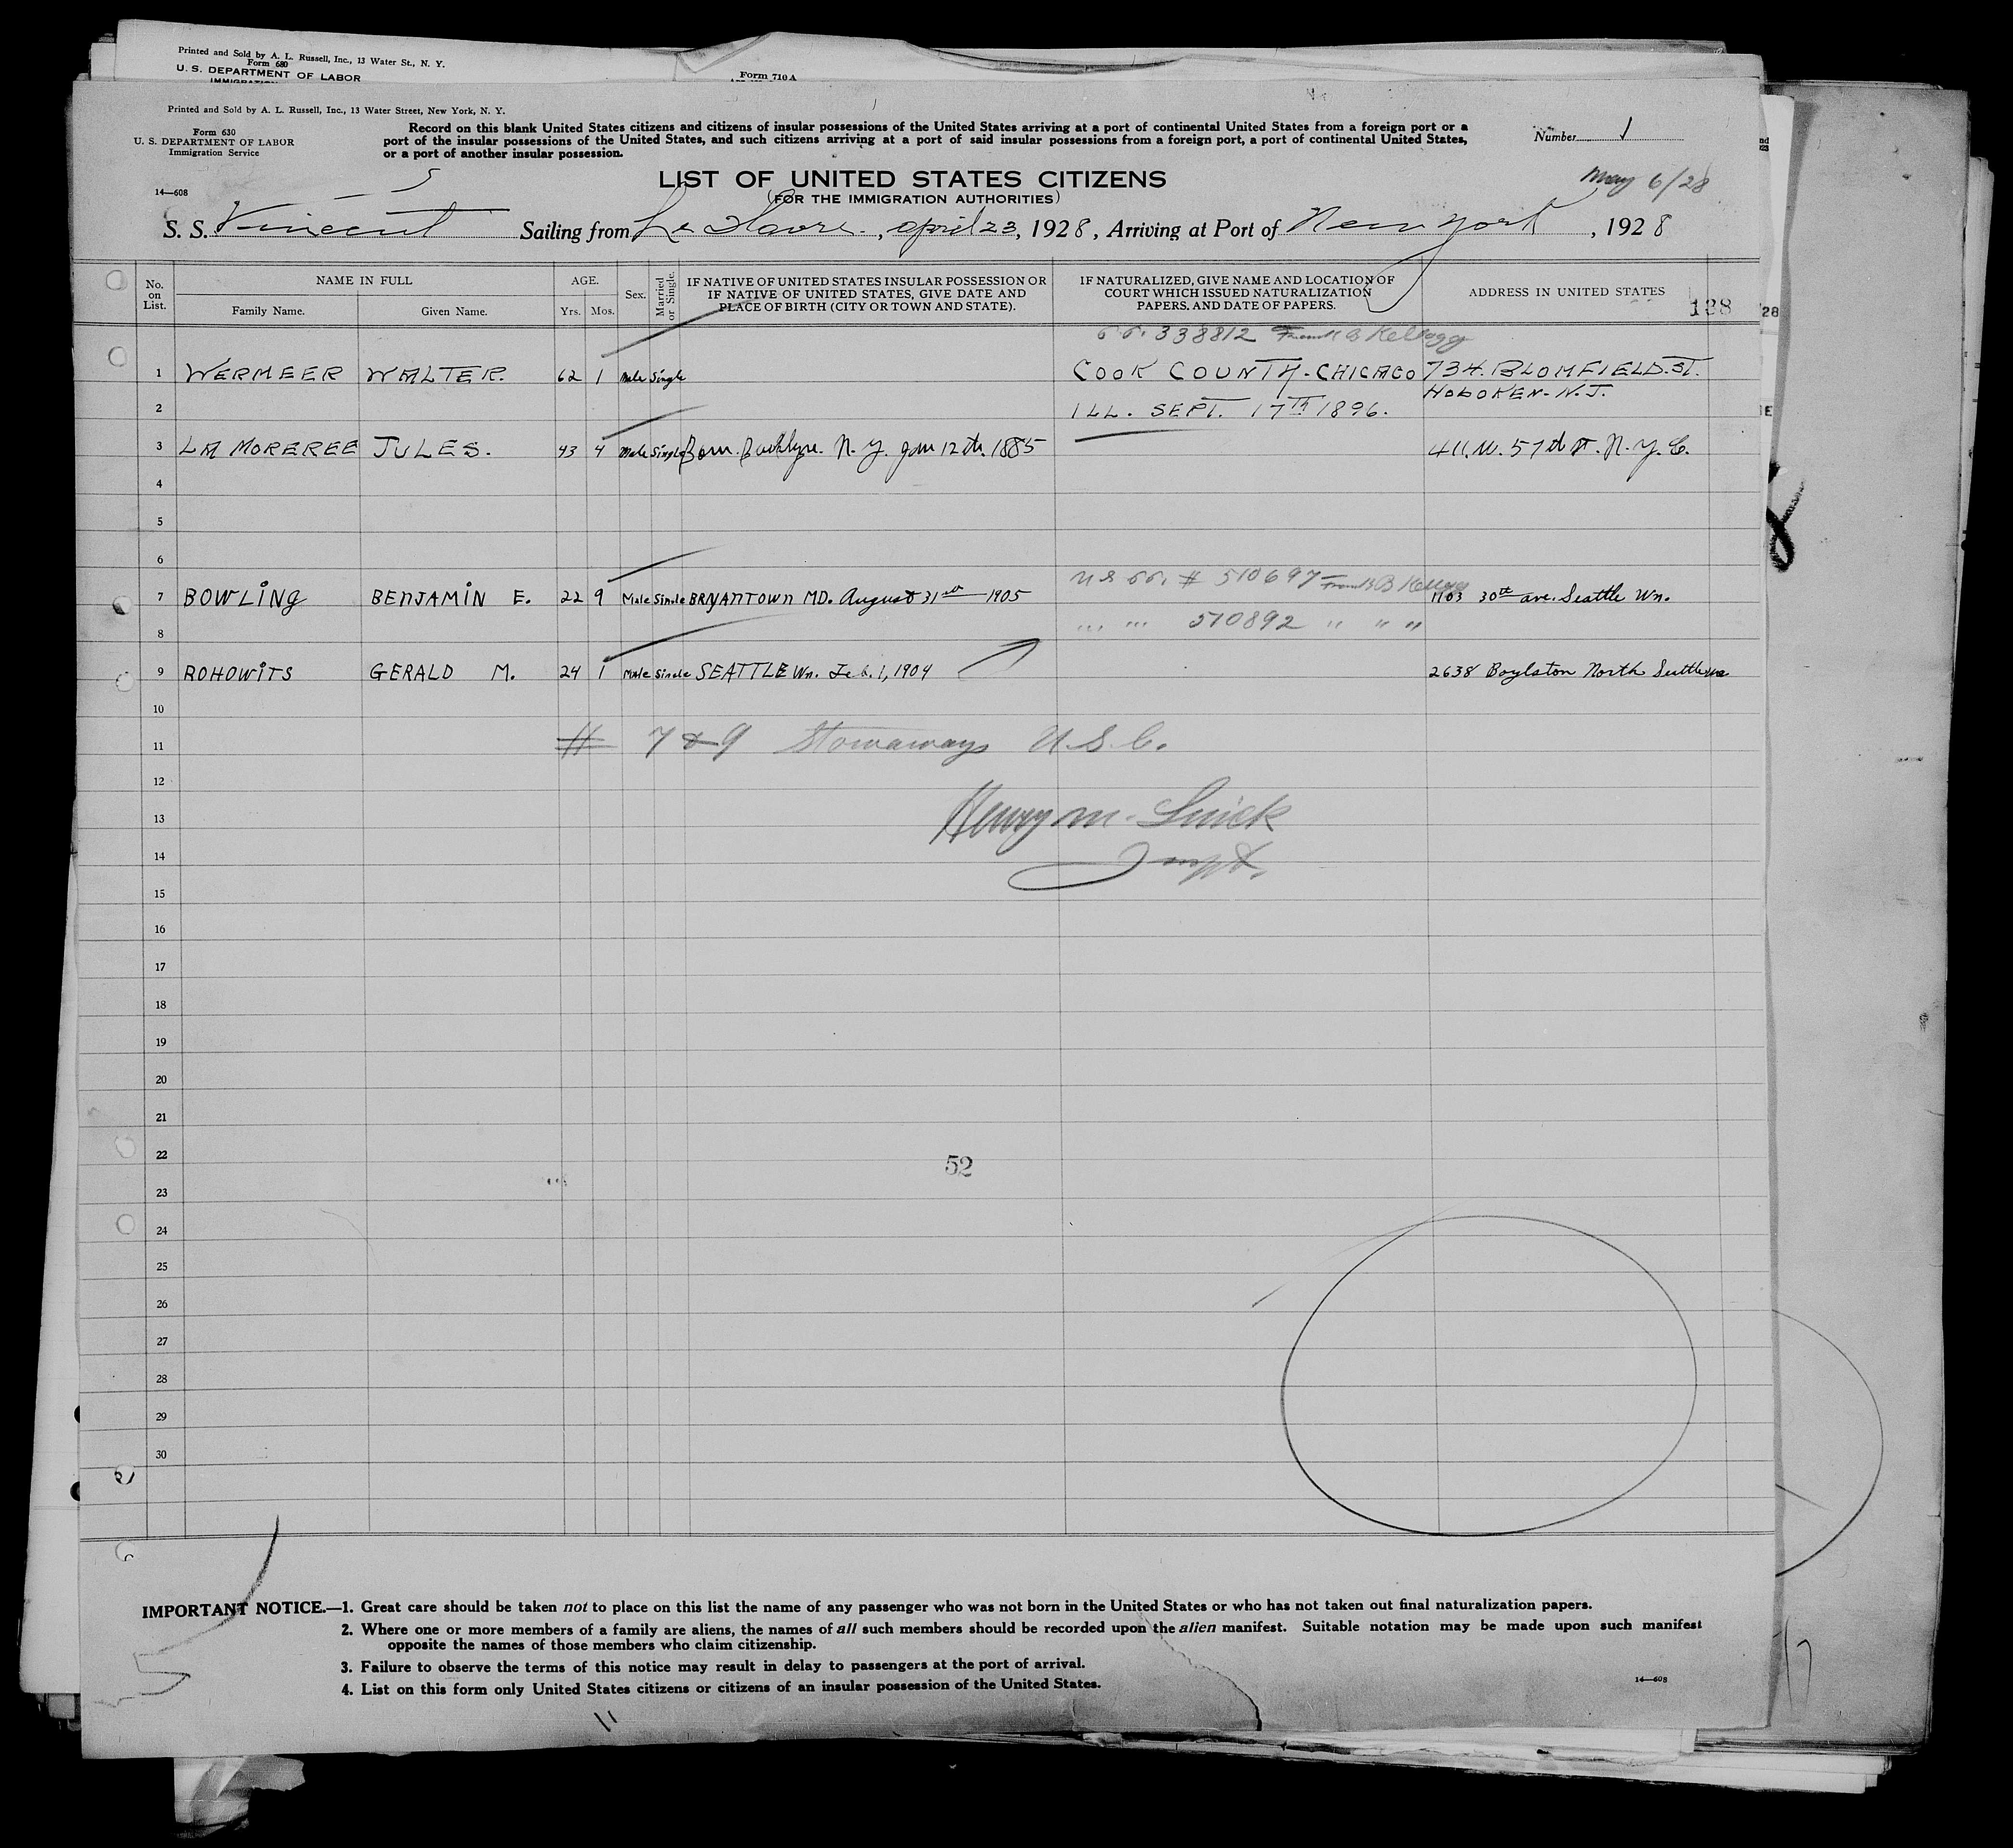 Printed and Sold by A. L. Russell, Inc., 13 Water St., N. Y.
Form 680
U. S. DEPARTMENT OF LABOR
Form 710 A
Printed and Sold by A. L. Russell, Inc., 13 Water Street, New York, N. Y.
Form 630
U. S. DEPARTMENT OF LABOR
Immigration Service
14—608
Record on this blank United States citizens and citizens of insular possessions of the United States arriving at a port of continental United States from a foreign port or a
port of the insular possessions of the United States, and such citizens arriving at a port of said insular possessions from a foreign port, a port of continental United States,
or a port of another insular possession.
Number 1
May 6/28
5
LIST OF UNITED STATES CITIZENS
(FOR THE IMMIGRATION AUTHORITIES)
S. S. Vincent Sailing from Le Havre, april 23, 1928, Arriving at Port of New York, 1928
No. on List.
NAME IN FULL
Family Name. Given Name.
AGE.
Yrs. Mos.
Sex.
Married or Single.
IF NATIVE OF UNITED STATES INSULAR POSSESSION OR
IF NATIVE OF UNITED STATES, GIVE DATE AND
PLACE OF BIRTH (CITY OR TOWN AND STATE).
IF NATURALIZED, GIVE NAME AND LOCATION OF
COURT WHICH ISSUED NATURALIZATION
PAPERS, AND DATE OF PAPERS.
ADDRESS IN UNITED STATES
138
/28
338812 Frank B Kellogg
1 WERMEER WALTER. 62 1 Male Single COOK COUNTY-CHICAGO 734. BLOMFIELD. ST.
HOBOKEN-N.J.
2 ILL. SEPT. 17TH 1896.
3 LA MOREREE JULES. 43 4 Male Single Born. Brooklyn. N. Y. Jan 12th. 1885 411. W. 57th St. N. Y. C.
4
5
6
# 510697 Frank B Kellogg
7 BOWLING BENJAMIN E. 22 9 Male Single BRYANTOWN MD. August 31st 1905 1103 30th ave. Seattle Wn.
8 " " 510892 " " "
9 ROHOWITS GERALD M. 24 1 Male Single SEATTLE Wn. Feb. 1, 1904 2638 Boylston North Seattle Wn
10
11 # 7 & 9 Stowaways U.S.C.
12
13 Henry M.
14 Inspt.
15
16
17
18
19
20
21
22
52
23
24
25
26
27
28
29
30
IMPORTANT NOTICE.—1. Great care should be taken not to place on this list the name of any passenger who was not born in the United States or who has not taken out final naturalization papers.
2. Where one or more members of a family are aliens, the names of all such members should be recorded upon the alien manifest. Suitable notation may be made upon such manifest
opposite the names of those members who claim citizenship.
3. Failure to observe the terms of this notice may result in delay to passengers at the port of arrival.
4. List on this form only United States citizens or citizens of an insular possession of the United States.
14—608
5
11